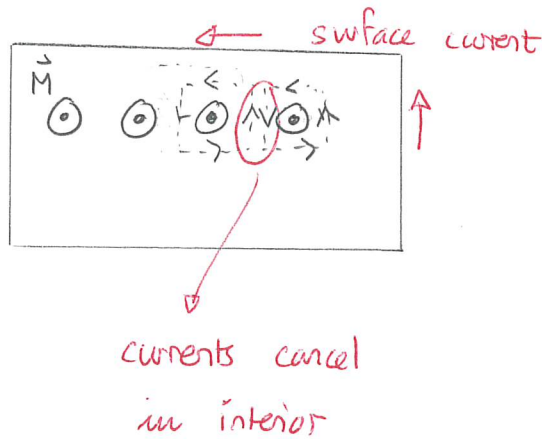 surface current
M⃗
currents cancel
in interior